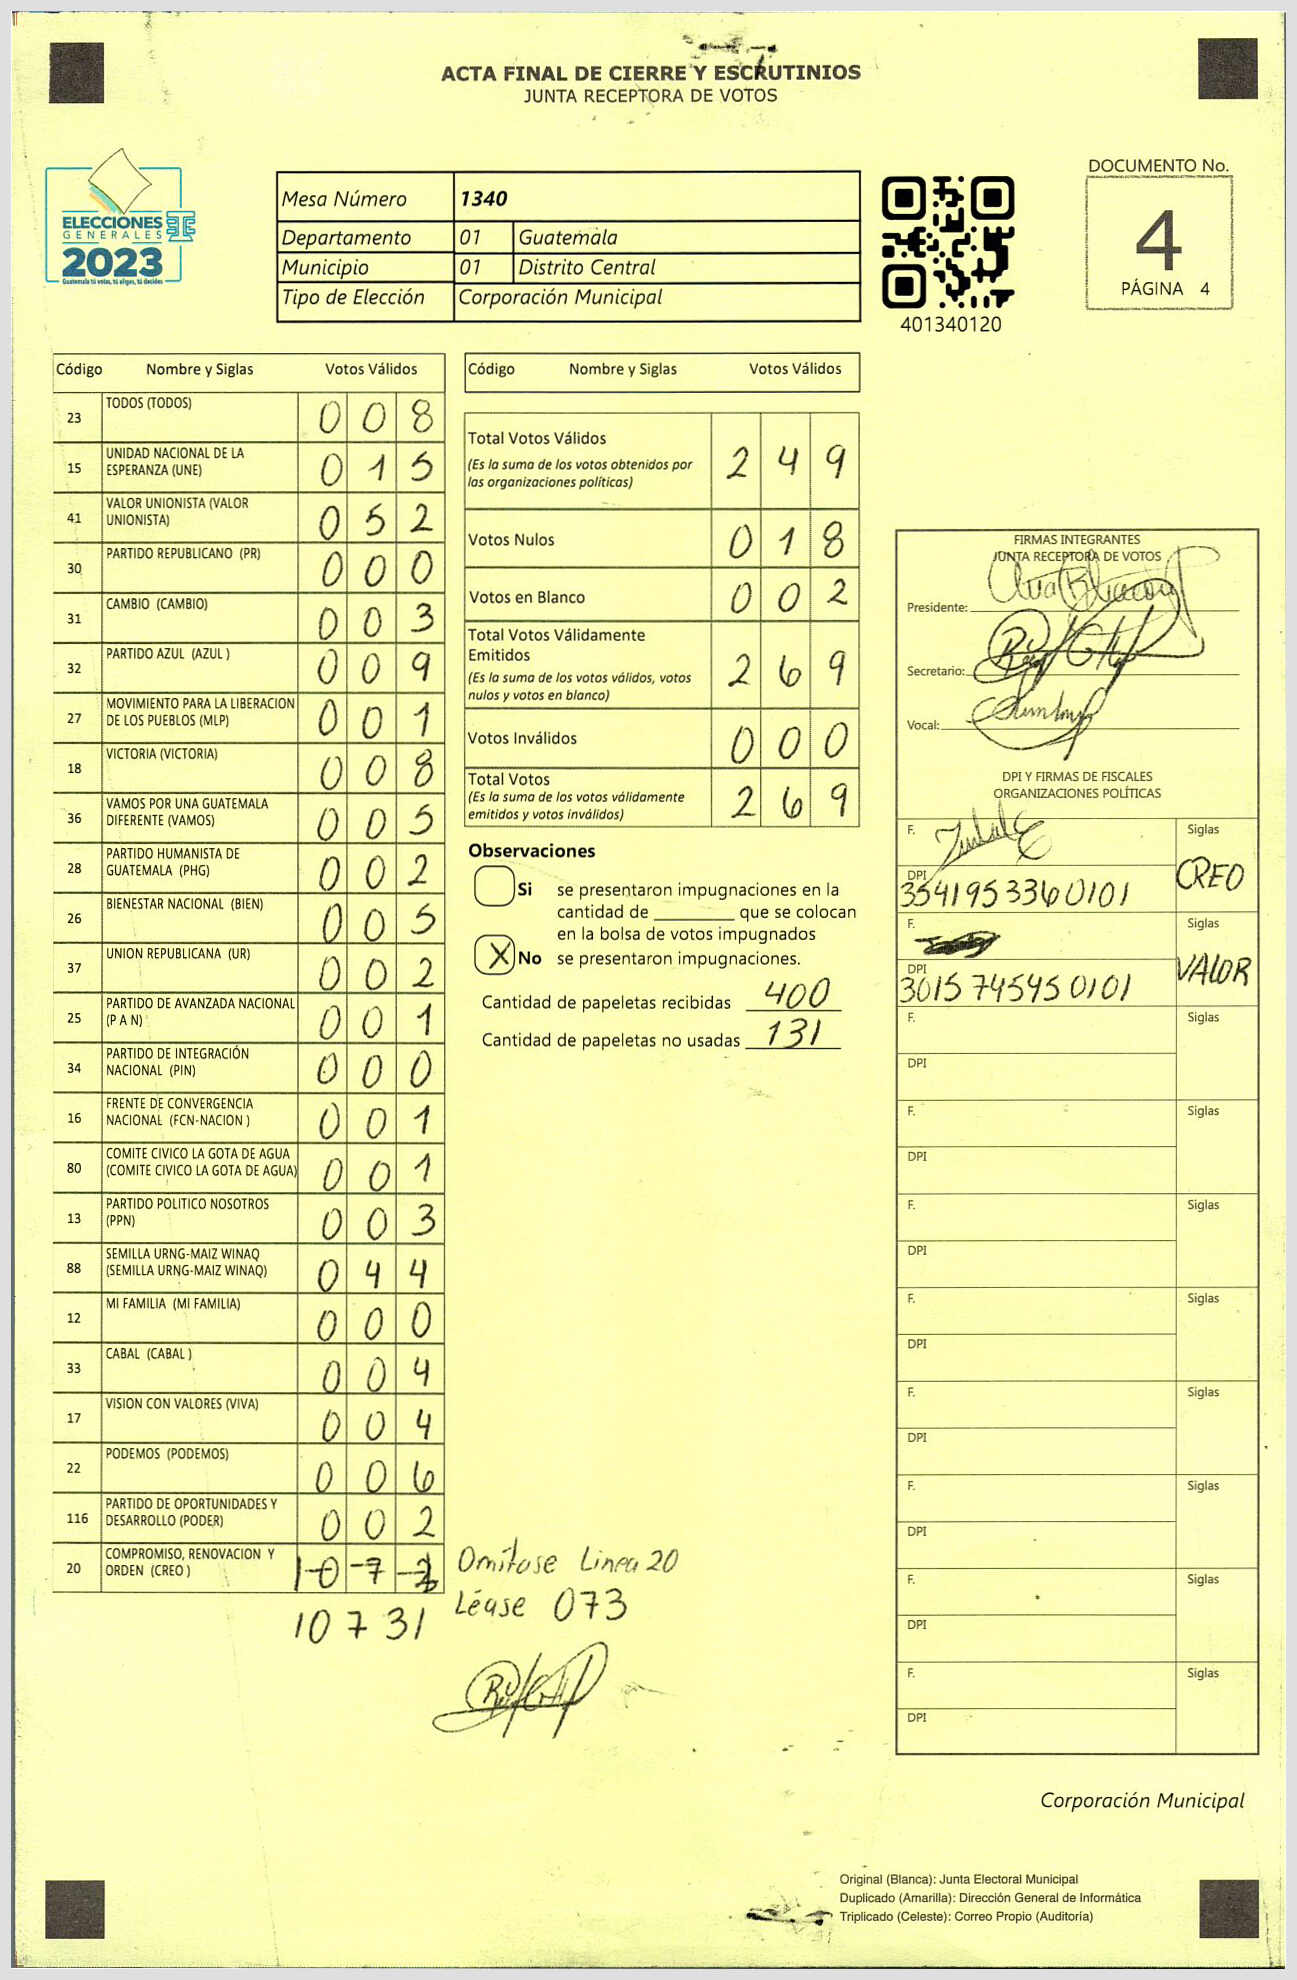 ACTA FINAL DE CIERRE Y ESCRUTINIOS
JUNTA RECEPTORA DE VOTOS
ELECCIONES
GENERALES
2023
Guatemala tú votas, tú eliges, tú decides
Mesa Número 1340
Departamento 01 Guatemala
Municipio 01 Distrito Central
Tipo de Elección Corporación Municipal
401340120
DOCUMENTO No.
4
PÁGINA 4
Código Nombre y Siglas Votos Válidos
23 TODOS (TODOS) 0 0 8
15 UNIDAD NACIONAL DE LA ESPERANZA (UNE) 0 1 5
41 VALOR UNIONISTA (VALOR UNIONISTA) 0 5 2
30 PARTIDO REPUBLICANO (PR) 0 0 0
31 CAMBIO (CAMBIO) 0 0 3
32 PARTIDO AZUL (AZUL ) 0 0 9
27 MOVIMIENTO PARA LA LIBERACION DE LOS PUEBLOS (MLP) 0 0 1
18 VICTORIA (VICTORIA) 0 0 8
36 VAMOS POR UNA GUATEMALA DIFERENTE (VAMOS) 0 0 5
28 PARTIDO HUMANISTA DE GUATEMALA (PHG) 0 0 2
26 BIENESTAR NACIONAL (BIEN) 0 0 5
37 UNION REPUBLICANA (UR) 0 0 2
25 PARTIDO DE AVANZADA NACIONAL (P A N) 0 0 1
34 PARTIDO DE INTEGRACIÓN NACIONAL (PIN) 0 0 0
16 FRENTE DE CONVERGENCIA NACIONAL (FCN-NACION ) 0 0 1
80 COMITE CIVICO LA GOTA DE AGUA (COMITE CIVICO LA GOTA DE AGUA) 0 0 1
13 PARTIDO POLITICO NOSOTROS (PPN) 0 0 3
88 SEMILLA URNG-MAIZ WINAQ (SEMILLA URNG-MAIZ WINAQ) 0 4 4
12 MI FAMILIA (MI FAMILIA) 0 0 0
33 CABAL (CABAL ) 0 0 4
17 VISION CON VALORES (VIVA) 0 0 4
22 PODEMOS (PODEMOS) 0 0 6
116 PARTIDO DE OPORTUNIDADES Y DESARROLLO (PODER) 0 0 2
20 COMPROMISO, RENOVACION Y ORDEN (CREO ) 0 7
10 7 31
Omítase Linea 20
Léase 073
Código Nombre y Siglas Votos Válidos
Total Votos Válidos 2 4 9
(Es la suma de los votos obtenidos por
las organizaciones políticas)
Votos Nulos 0 1 8
Votos en Blanco 0 0 2
Total Votos Válidamente
Emitidos 2 6 9
(Es la suma de los votos válidos, votos
nulos y votos en blanco)
Votos Inválidos 0 0 0
Total Votos 2 6 9
(Es la suma de los votos válidamente
emitidos y votos inválidos)
Observaciones
Si se presentaron impugnaciones en la
cantidad de ________ que se colocan
en la bolsa de votos impugnados
X No se presentaron impugnaciones.
Cantidad de papeletas recibidas 400
Cantidad de papeletas no usadas 131
FIRMAS INTEGRANTES
JUNTA RECEPTORA DE VOTOS
Presidente:
Secretario:
Vocal:
DPI Y FIRMAS DE FISCALES
ORGANIZACIONES POLÍTICAS
F. Siglas
DPI 3541953360101 CREO
F. Siglas
DPI 3015745450101 VALOR
F. Siglas
DPI
F. Siglas
DPI
F. Siglas
DPI
F. Siglas
DPI
F. Siglas
DPI
F. Siglas
DPI
F. Siglas
DPI
F. Siglas
DPI
Corporación Municipal
Original (Blanca): Junta Electoral Municipal
Duplicado (Amarilla): Dirección General de Informática
Triplicado (Celeste): Correo Propio (Auditoría)